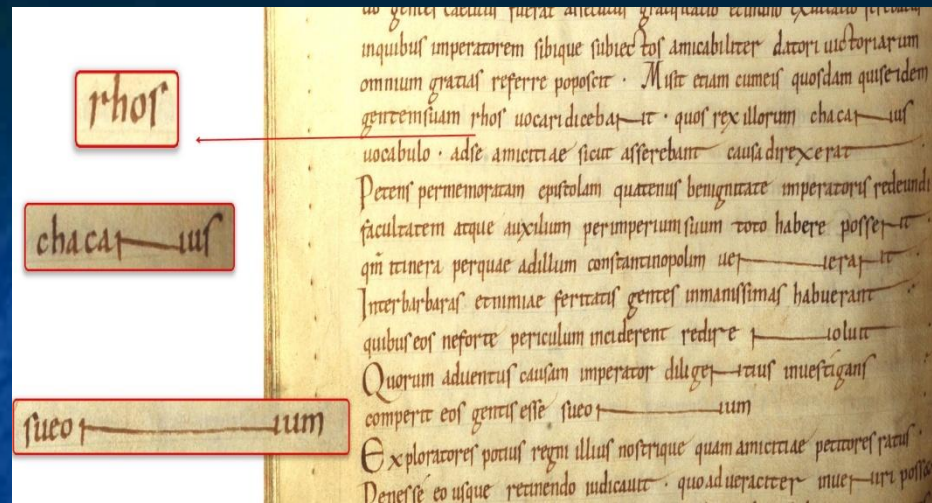 rhos
chacanus
sueonum
gentes caelitus fuerat
inquibus imperatorem sibique subiectos amicabiliter datori uictoriarum
omnium gratias referre poposcit · Misit etiam cumeis quosdam quiseidem
gentemsuam rhos uocaridicebant · quos rex illorum chacanus
uocabulo · adse amicitiae sicut asserebant causadirexerat
Petens permemoratam epistolam quatenus benignitate imperatoris redeundi
facultatem atque auxilium perimperium suum toto habere possent
qm̄ itinera perquae adillum constantinopolim uenerant
Interbarbaras etnimiae feritatis gentes inmanissimas habuerant
quibus eos neforte periculum inciderent redire noluit
Quorum aduentus causam imperator diligentius inuestigans
comperit eos gentis esse sueonum
Exploratores potius regni illius nostrique quam amicitiae petitores ratus ·
Penesse eo usque retinendo iudicauit · quoad ueraciter inueniri poss